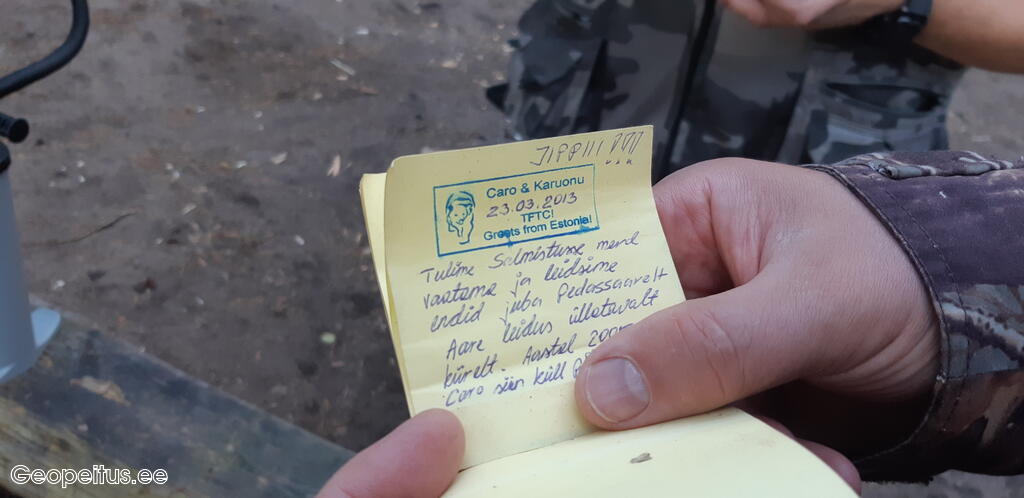 JIPPIII !!!
Caro & Karuonu
23.03.2013
TFTC!
Greets from Estonia!
Tulime Salmistusse merd
vaatama ja leidsime
endid juba Pedassaarelt
Aare leidus üllatavalt
kiirelt. Aastal 200
Caro siin küll
Geopeitus.ee